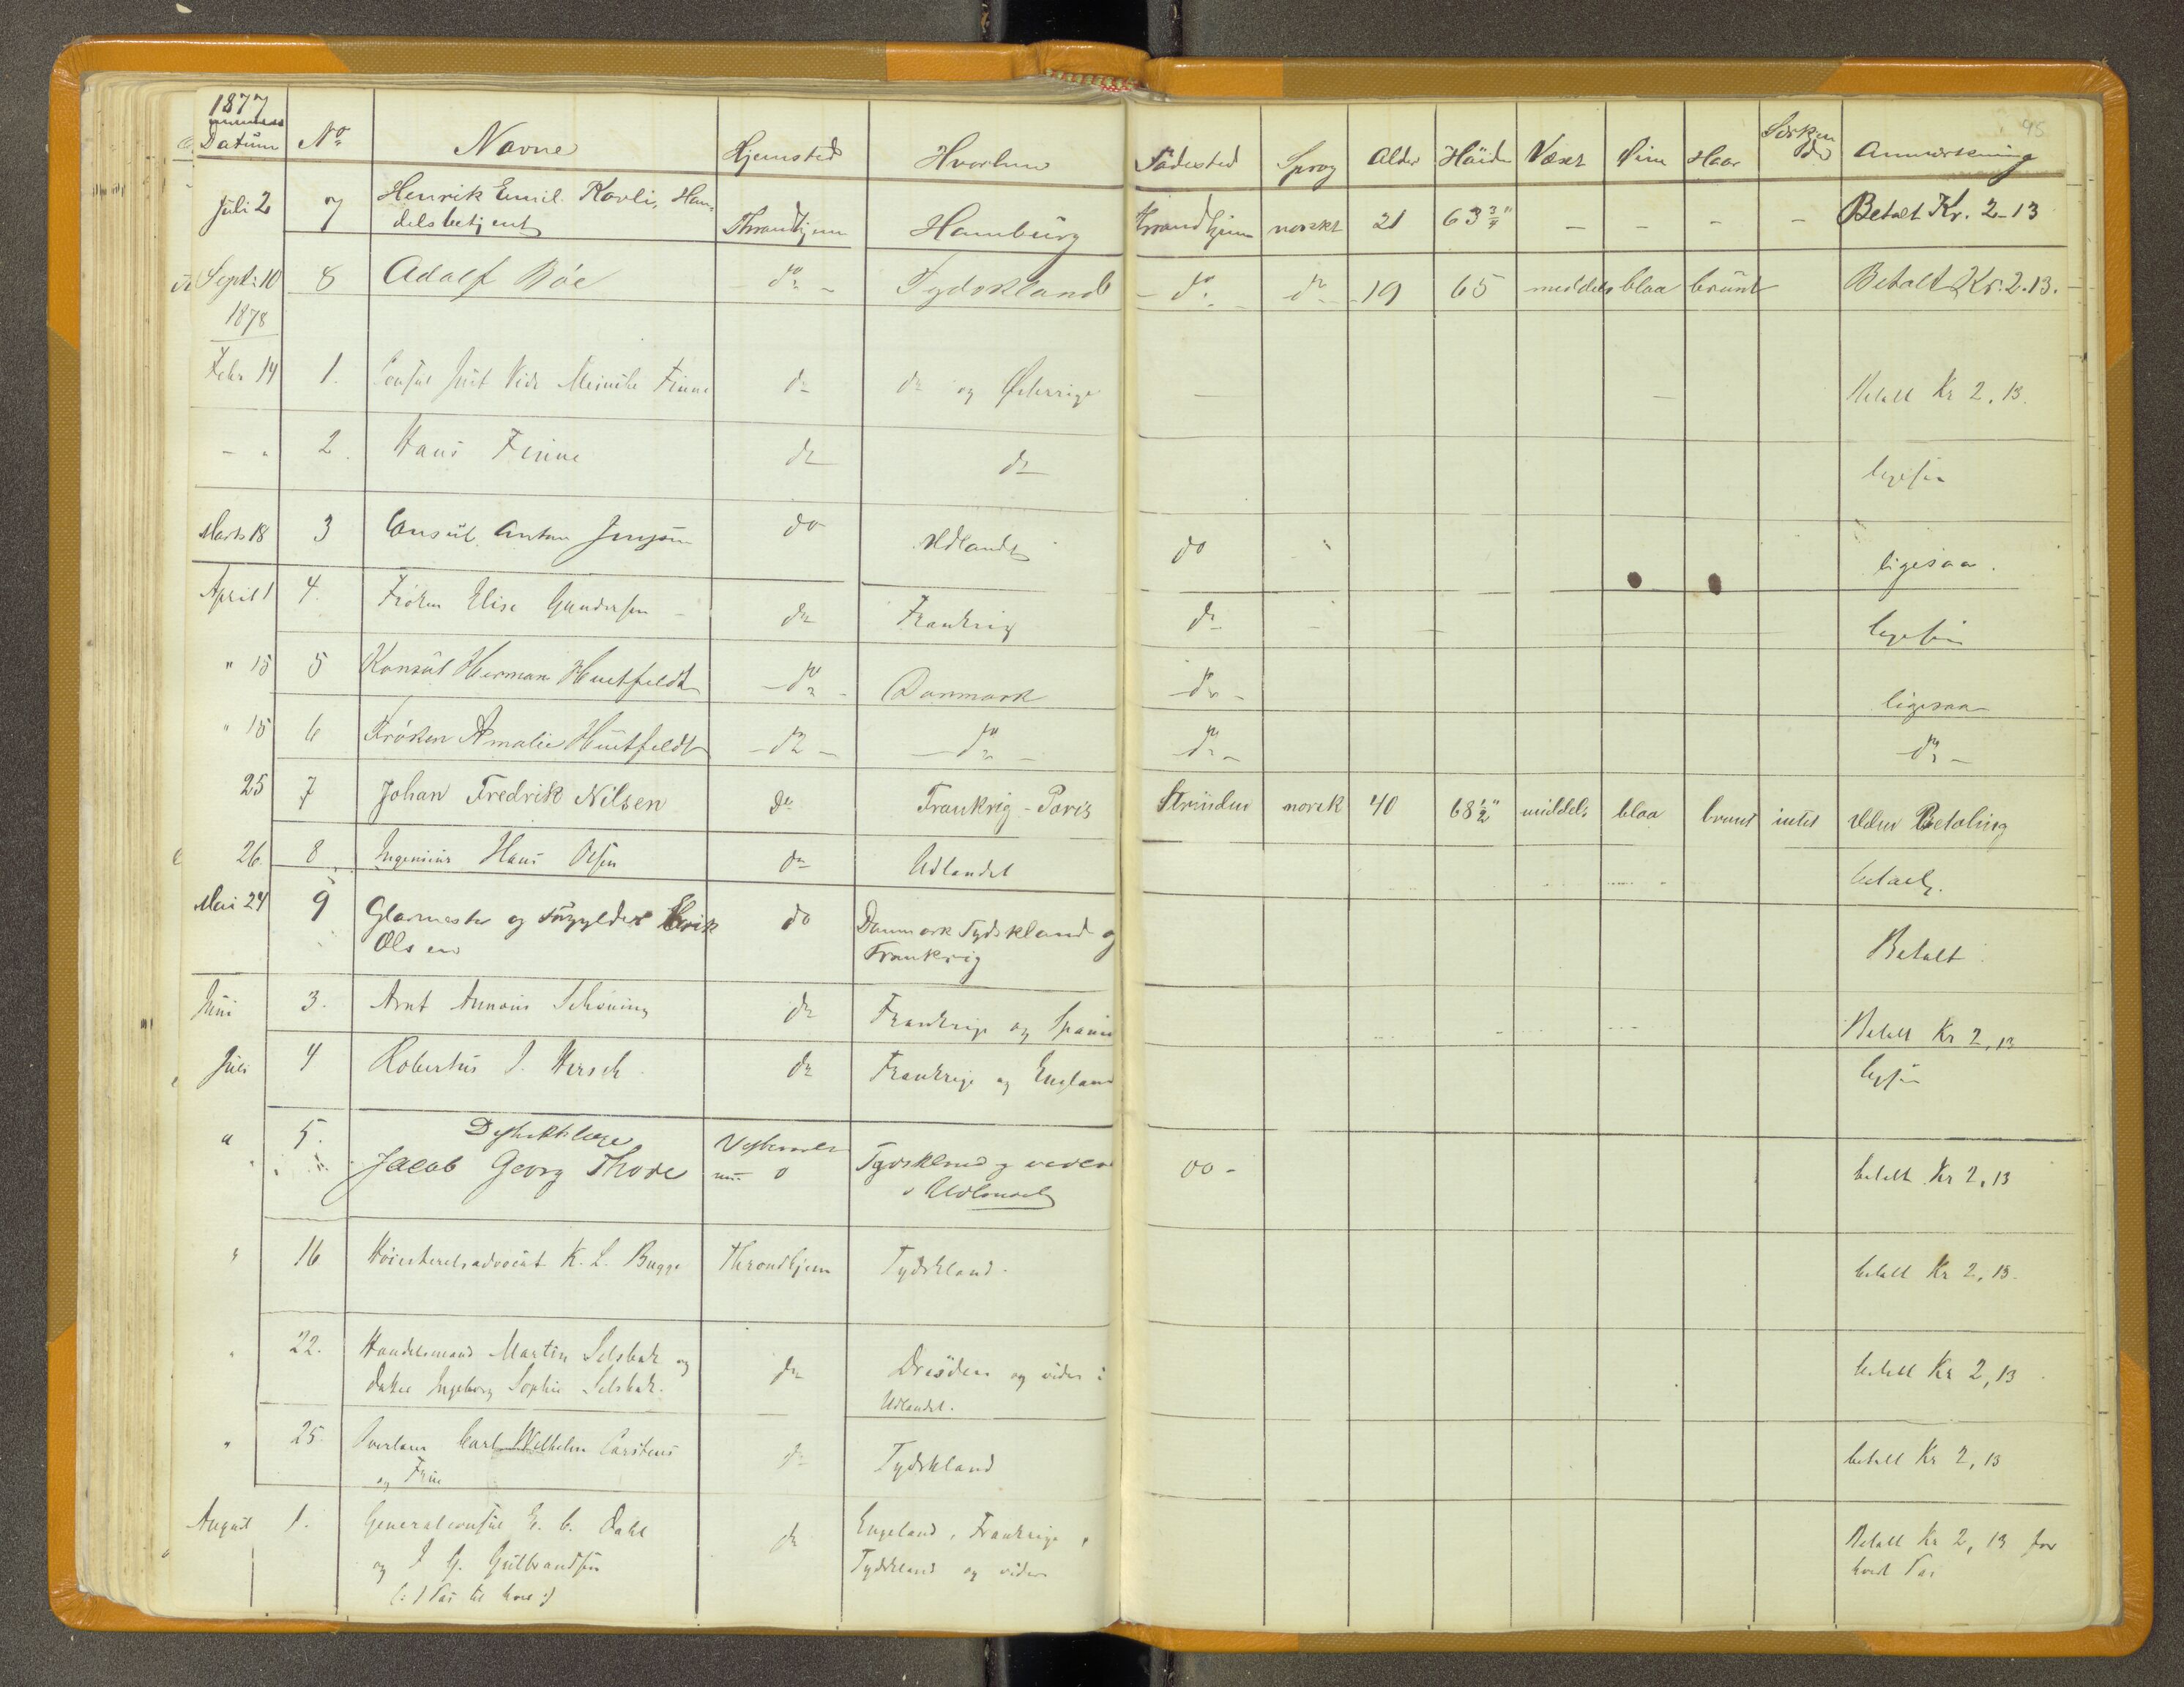 1877
Datum No Navne Hjemsted Hvorhen Födested Sprog Alder Höide Væxt Öine Haar Anmærkning 95
Juli 2 7 Henrik Emil Kavli, Han-
delsbetjent Throndhjem Hamburg Throndhjem norskt 21 63 3/4" - - - - Betalt Kr. 2-13
Septr 10 8 Adolf Böe do Tydskland do do 19 65 middels blaa brünt Betalt Kr. 2.13.
1878
Febr 14 1. Consul Finne do do og Østerrige - - Betalt Kr 2,13.
- " 2. Hans Finne do do ligesaa
Marts 18 3 Consül Anton Jenssen do Udlandet do " ligesaa.
April 1 4. Frøken Elise Gundersen do Frankrig do ligesaa
" 15 5 Konsül Herman Huitfeldt do Danmark do ligesaa
" 15 6 Frøken Amalie Huitfeldt do do do do
25 7 Johan Fredrik Nilsen do Frankrig - Paris Strinden norsk 40 68 1/2" middels blaa brunt intet Uden Betaling
26. 8 Ingeniør Hans Olsen do Udlandet betalt.
Mai 24 9 Glarmester og Forgylder Erik
Olsen do Danmark Tydskland og
Frankrig Betalt
Juni 3. Arnt Schøning do Frankrige og Spanien Betalt Kr 2,13
Juli 4 Robertus J. Hirsch do Frankrige og England ligesaa
" 5. Distriktslæge
Jacob Georg Thode Tydskland og videre
i Udlandet do - betalt Kr 2,13
" 16 Høiesteretsadvocat K. L. Bugge Throndhjem Tydskland. betalt Kr 2,13.
" 22. Handelsmand Martin Selsbak og
Datter Ingeborg Sophie Selsbak. do Dresden og vider i
Udlandet. betalt Kr 2,13
" 25. Carl Wilhelm Carstens
og Frue do Tydskland betalt Kr 2,13
August 1. Generalconsul E. C. Dahl
og J G. Gulbrandsen
(: 1 Pas til hver :) do Engeland, Frankrige,
Tydskland og videre Betalt Kr 2,13 for
hvert Pas